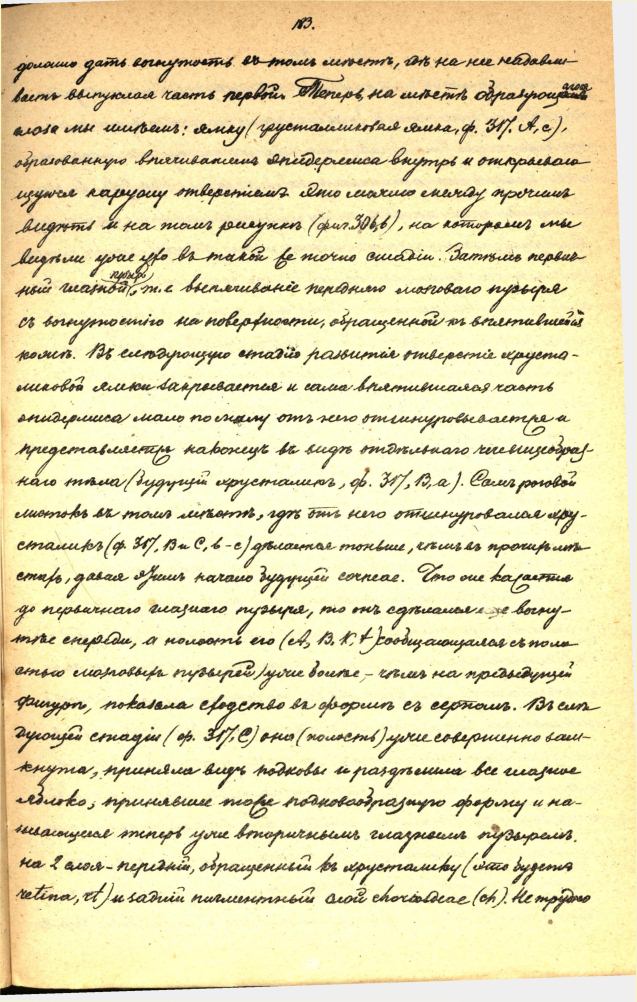 183.
должно дать вогнутость въ томъ мѣстѣ, гдѣ на нее надавли-
ваетъ выпуклая часть первой. Теперь, на мѣстѣ образующагося
глаза мы имѣемъ: ямку (хрусталиковая ямка, ф. 317. А, с),
образованную впячиваніемъ эпидермиса внутрь и открывающ
щуюся наружу отверстіемъ. Это можно между прочимъ
видѣть и на томъ рисункѣ (фиг. 306, b), на которомъ мы
видѣли уже ухо въ такой же точно стадіи. Затѣмъ первич-
ный глазной пузырь, т. е. выпячиваніе передняго мозговаго пузыря
съ вогнутостію на поверхности, обращенной къ впятившейся
кожѣ. Въ слѣдующую стадію развитія отверстіе хруста-
ликовой ямки закрывается и сама впятившаяся часть
эпидермиса мало по малу отъ него отшнуровывается и
представляется наконецъ въ видѣ отдѣльнаго чечевицеобраз-
наго тѣла (будущій хрусталикъ, ф. 317, В, а). Самъ роговой
листокъ въ томъ мѣстѣ, гдѣ отъ него отшнуровался хру-
сталикъ (ф. 317, В и С, b-c) дѣлается тоньше, чѣмъ въ прочихъ мѣ-
стахъ, давая этимъ начало будущей corneae. Что же касается
до первичнаго глазнаго пузыря, то онъ сдѣлался еще вогну-
тѣе спереди, а полость его (А, В. К, t) сообщающаяся съ поло
стью мозговыхъ пузырей) уже болѣе, чѣмъ на предыдущей
фигурѣ, показала сходство въ формѣ съ серпомъ. Въ слѣ
дующей стадіи (ф. 317, С) она (полость) уже совершенно зам-
кнута, приняла видъ подковы и раздѣлила все глазное
яблоко, принявшее тоже подковообразную форму и на-
зывающееся теперь уже вторичнымъ глазнымъ пузыремъ.
на 2 слоя - передній, обращенный къ хрусталику (это будетъ
retina, rt) и задній пигментный слой chorioideae (ch). Не трудно